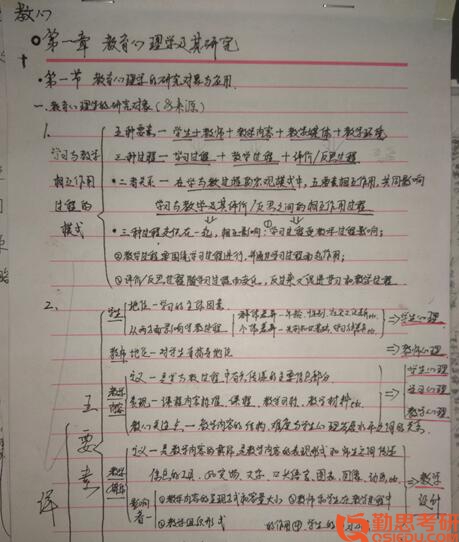 教心
第一章 教育心理学及其研究
·第一节 教育心理学的研究对象与应用
一.教育心理学的研究对象(多来源)
1.
学习与教学
相互作用
过程的
模式
五种要素—学生+教师+教学内容+教学媒体+教学环境
三种过程—学习过程+教学过程+评价/反思过程
·二者关系—在学与教过程的宏观模式中,五要素相互作用,共同影响
学习与教学及其评价/反思之间的相互作用过程
·三种过程交织在一起,相互影响:①学习过程受教学过程影响;
②教学过程要围绕学习过程进行,并通过学习过程而起作用;
③评价/反思过程随学习过程而变化,反过来又促进学习和教学过程.
2.
主要素
学生
地位—学习的主体因素
从两方面影响学教过程
群体差异—年龄、性别、社会文化差异etc.
个体差异—先前知识基础、学习
⇒学生心理
教师
地位—对学生有指导地位
⇒教师心理
教学内容
定义—是学与教过程中有意传递的主要信息部分.
表现—课程内容标准、课程、教学目标、教学材料etc.
教学内容的结构、难度与学生心理发展水平之间的关系.
⇒
学生心理
学习心理
教学心理
教学媒体
定义—是教学内容的载体,是教学内容的表现形式,师生之间传递
信息的工具,如实物、文字、口头语言、图表、图像、动画etc.
影响者—
①教学内容的呈现方式和容量大小 ②教师和学生在教学过程中
③教学组织形式 的作用 ④学生的
⇒教学设计
详
勤思考研
QSIEDU.COM